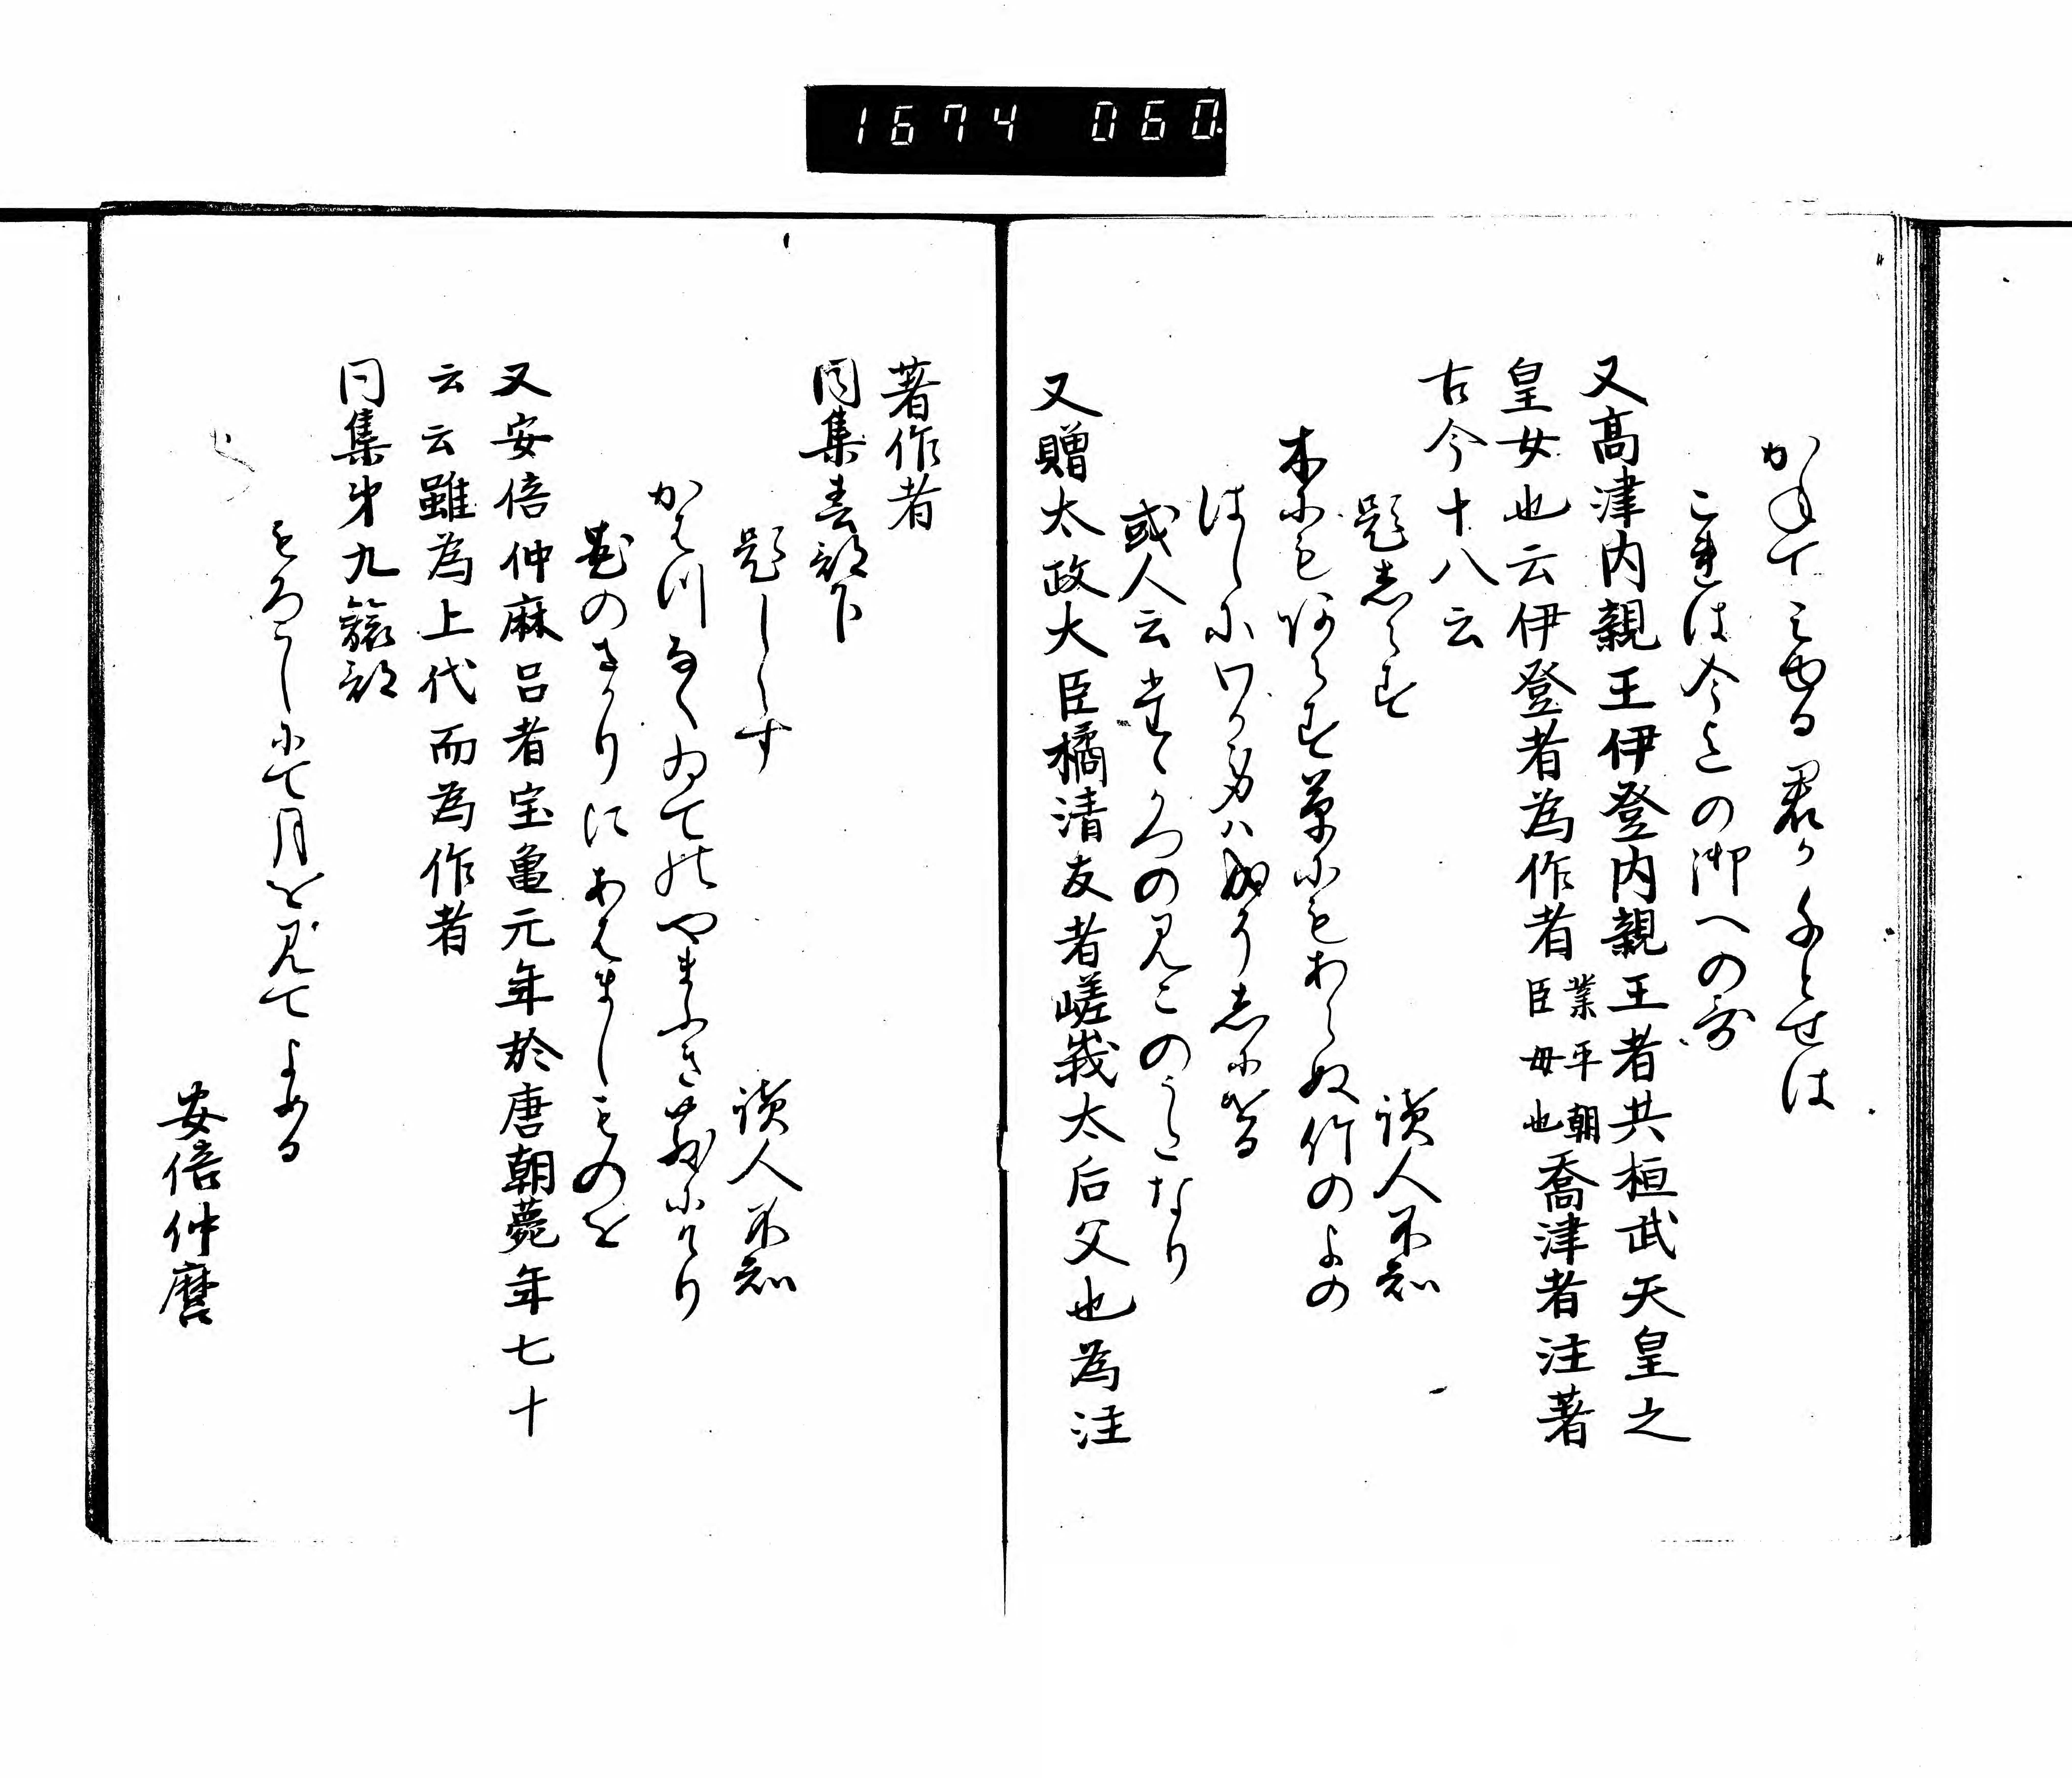 1674 060
かねてそみゆる君か千とせは
これは今上の御への哥
又高津内親王伊登内親王者共桓武天皇之
皇女也云伊登者為作者業平朝臣母也喬津者注著
古今十八云
題志らす　　　　読人不知
木にもあらす草にもあらぬ竹のよの
はしにわか身は成ぬへら也
或人云たかつの見このうたなり
又贈太政大臣橘清友者嵯峨太后父也為注
著作者
同集春部下
題しらす　　　　読人不知
かはつなくゐての山やまふき散にけり
花のさかりにあはましものを
又安倍仲麻呂者宝亀元年於唐朝薨年七十
云云雖為上代而為作者
同集第九羇旅部
もろこしにて月を見てよめる
安倍仲麿